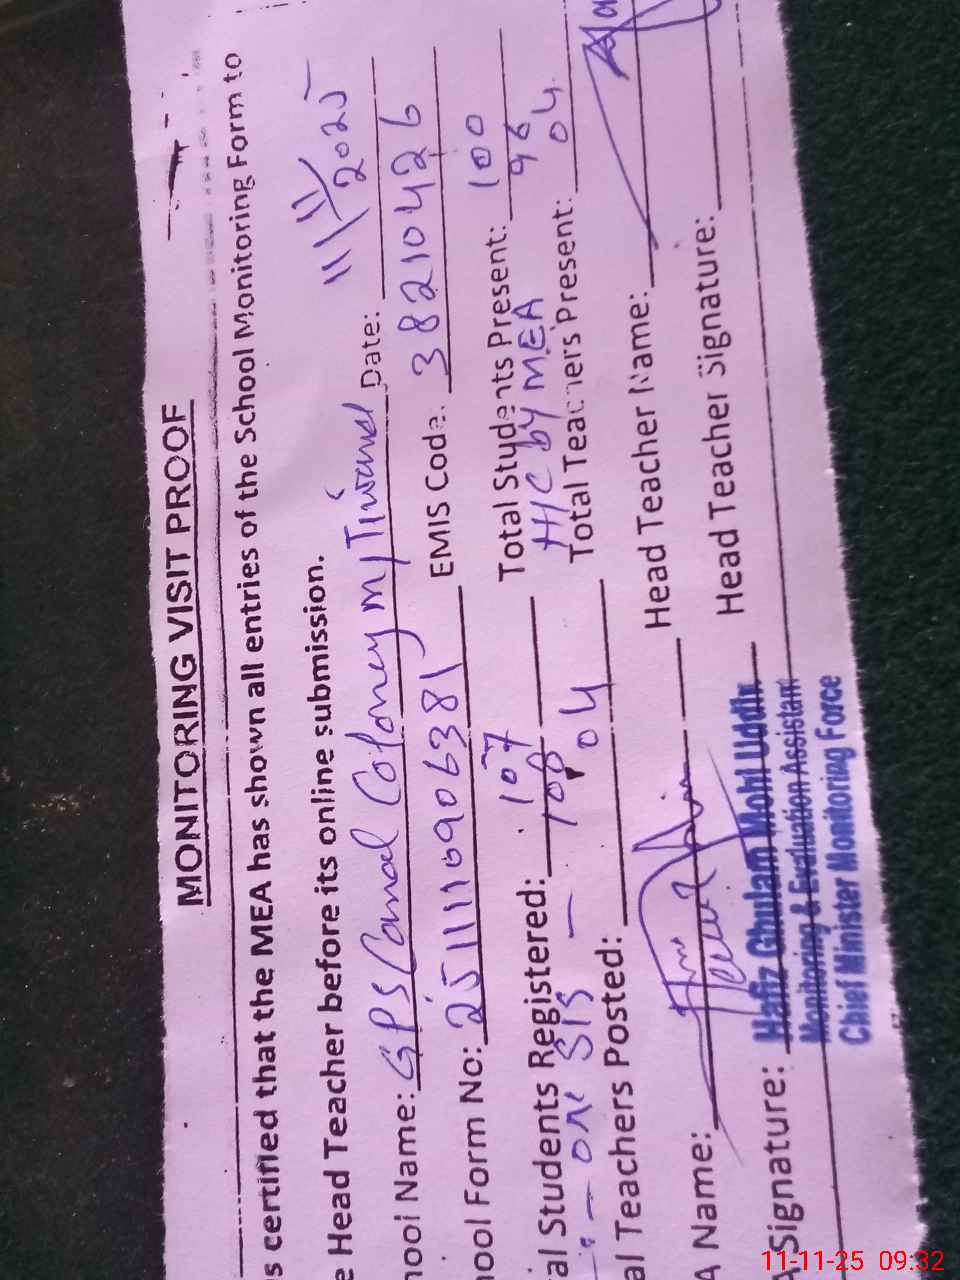 MONITORING VISIT PROOF
s certified that the MEA has shown all entries of the School Monitoring Form to
e Head Teacher before its online submission.
hool Name: GPS Canal Coloney m/Tiwand Date: 11/11/2025
hool Form No: 2511110906381 EMIS Code: 38210426
al Students Registered: 107 Total Students Present: 100
108 96
- on SIS - H/C by MEA
al Teachers Posted: 04 Total Teachers Present: 04
A Name: Head Teacher Name:
A Signature: Head Teacher Signature:
Hafiz Ghulam Mohi Uddin
Monitoring & Evaluation Assistant
Chief Minister Monitoring Force
11-11-25 09:32